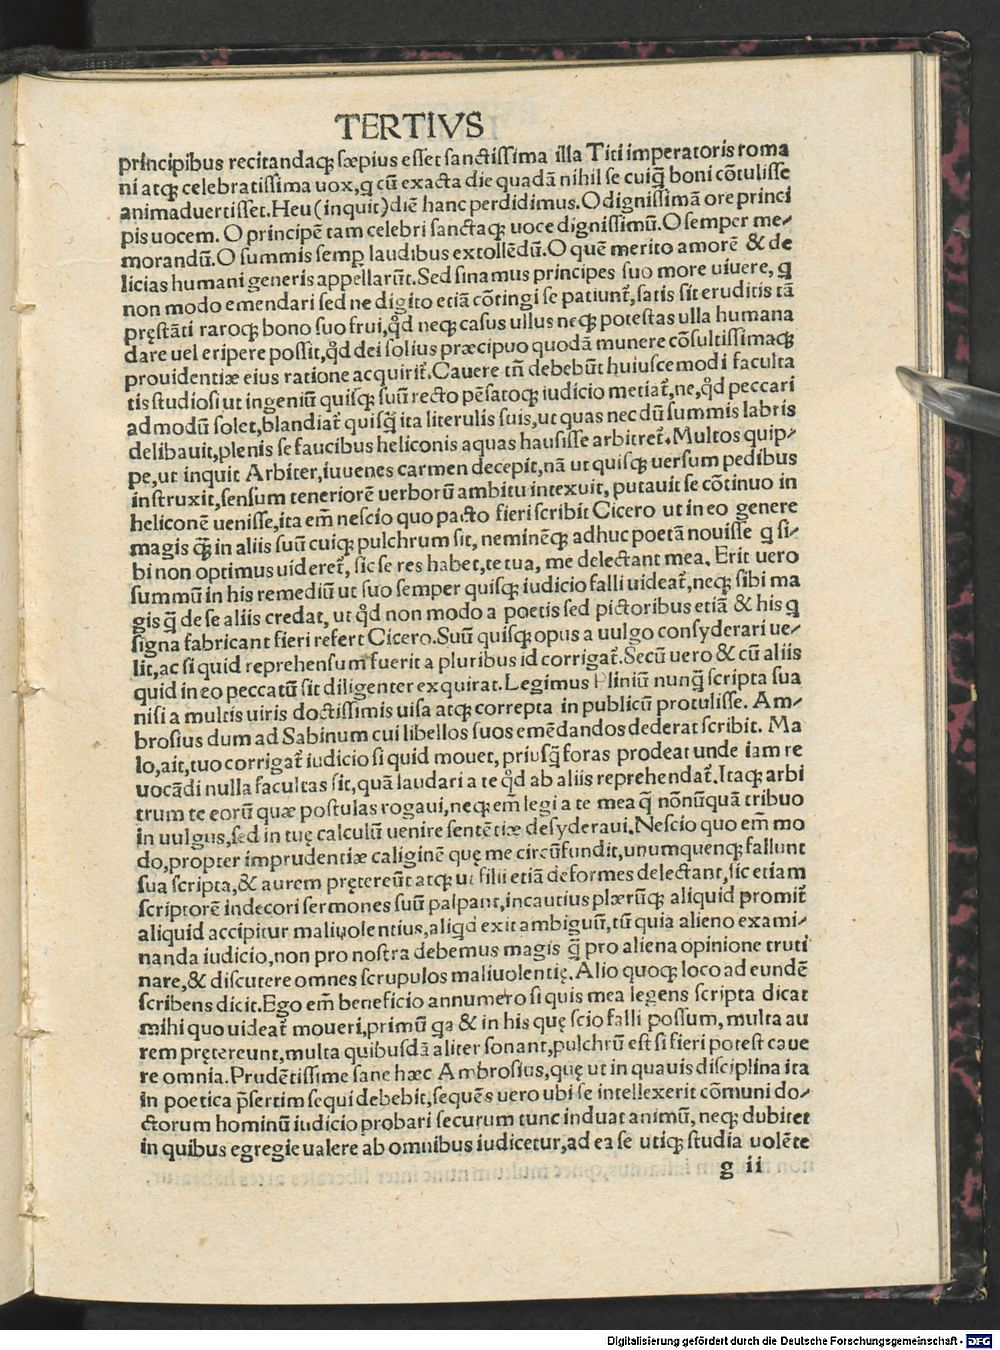 TERTIVS
principibus recitandaqꝫ sæpius esset sanctissima illa Titi imperatoris roma
ni atqꝫ celebratissima uox,q cũ exacta die quadã nihil se cuiq̃ boni cõtulisse
animaduertisset.Heu(inquit)diẽ hanc perdidimus.O dignissimã ore princi
pis uocem. O principẽ tam celebri sanctaqꝫ uoce dignissimũ.O semper me⸗
morandũ.O summis semꝑ laudibus extollẽdũ.O quẽ merito amorẽ & de
licias humani generis appellarũt.Sed sinamus principes suo more uiuere, q
non modo emendari sed ne digito etiã cõtingi se patiunt̃,satis sit eruditis tã
pręstãti raroqꝫ bono suo frui,q̃d neqꝫ casus ullus neqꝫ potestas ulla humana
dare uel eripere possit,q̃d dei solius præcipuo quodã munere cõsultissimaqꝫ
prouidentiæ eius ratione acquirit̃.Cauere tñ debebũt huiuscemodi faculta
tis studiosi ut ingeniũ quisqꝫ suũ recto pẽsatoqꝫ iudicio metiat̃,ne,q̃d peccari
admodũ solet,blandiat̃ quisq̃ ita literulis suis,ut quas nec dũ summis labris
delibauit,plenis se faucibus heliconis aquas hausisse arbitret̃.Multos quip⸗
pe,ut inquit Arbiter,iuuenes carmen decepit,nã ut quisqꝫ uersum pedibus
instruxit,sensum teneriorẽ uerborũ ambitu intexuit, putauit se cõtinuo in
heliconẽ uenisse,ita em̃ nescio quo pacto fieri scribit Cicero ut in eo genere
magis q̃ꝫ in aliis suũ cuiqꝫ pulchrum sit, neminẽqꝫ adhuc poetã nouisse q si⸗
bi non optimus uideret̃, sic se res habet,te tua, me delectant mea. Erit uero
summũ in his remediũ ut suo semper quisqꝫ iudicio falli uideat̃,neqꝫ sibi ma
gis q̃ de se aliis credat, ut q̃d non modo a poetis sed pictoribus etiã & his q
signa fabricant fieri refert Cicero.Suũ quisqꝫ opus a uulgo consyderari ue⸗
lit,ac si quid reprehensum fuerit a pluribus id corrigat̃.Secũ uero & cũ aliis
quid in eo peccatũ sit diligenter exquirat.Legimus Pliniũ nunq̃ scripta sua
nisi a multis uiris doctissimis uisa atqꝫ correpta in publicũ protulisse. Am⸗
brosius dum ad Sabinum cui libellos suos emẽdandos dederat scribit. Ma
lo,ait,tuo corrigat̃ iudicio si quid mouet, priusq̃ foras prodeat unde iam re
uocãdi nulla facultas sit,quã laudari a te q̃d ab aliis reprehendat̃.Itaqꝫ arbi
trum te eorũ quæ postulas rogaui,neqꝫ em̃ legi a te mea q̃ nõnũquã tribuo
in uulgus,sed in tuę calculũ uenire sentẽtiæ desyderaui.Nescio quo em̃ mo
do,propter imprudentiæ caliginẽ quę me circũfundit,unumquenqꝫ fallunt
sua scripta,& aurem pręterеũt atqꝫ ut filii etiã deformes delectant,sic etiam
scriptorẽ indecori sermones suũ palpant,incautius plærũqꝫ aliquid promit̃
aliquid accipitur maliuolentius,aliqd exit ambiguũ,tũ quia alieno exami⸗
nanda iudicio,non pro nostra debemus magis q̃ pro aliena opinione truti
nare,& discutere omnes scrupulos maliuolentię.Alio quoqꝫ loco ad eundẽ
scribens dicit.Ego em̃ beneficio annumero si quis mea legens scripta dicat
mihi quo uideat̃ moueri,primũ qa & in his quę scio falli possum, multa au
rem prętereunt,multa quibusdã aliter sonant,pulchrũ est si fieri potest caue
re omnia.Prudẽtissime sane hæc Ambrosius,quę ut in quauis disciplina ita
in poetica p̃sertim sequi debebit,sequẽs uero ubi se intellexerit cõmuni do⸗
ctorum hominũ iudicio probari securum tunc induat animũ, neqꝫ dubitet
in quibus egregie ualere ab omnibus iudicetur,ad ea se utiqꝫ studia uolẽte
g ii
Digitalisierung gefördert durch die Deutsche Forschungsgemeinschaft - DFG